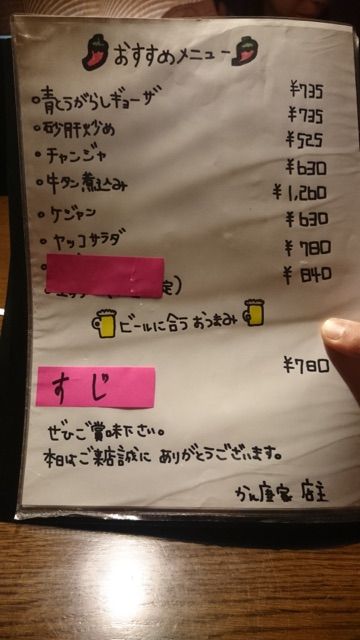 おすすめメニュー
・青とうがらしギョーザ ¥735
・砂肝炒め ¥735
・チャンジャ ¥525
・牛タン煮込み ¥630
・ケジャン ¥1,260
・ヤッコサラダ ¥630
¥780
定) ¥840
ビールに合うおつまみ
すじ ¥780
ぜひご賞味下さい。
本日はご来店誠にありがとうございます。
店主